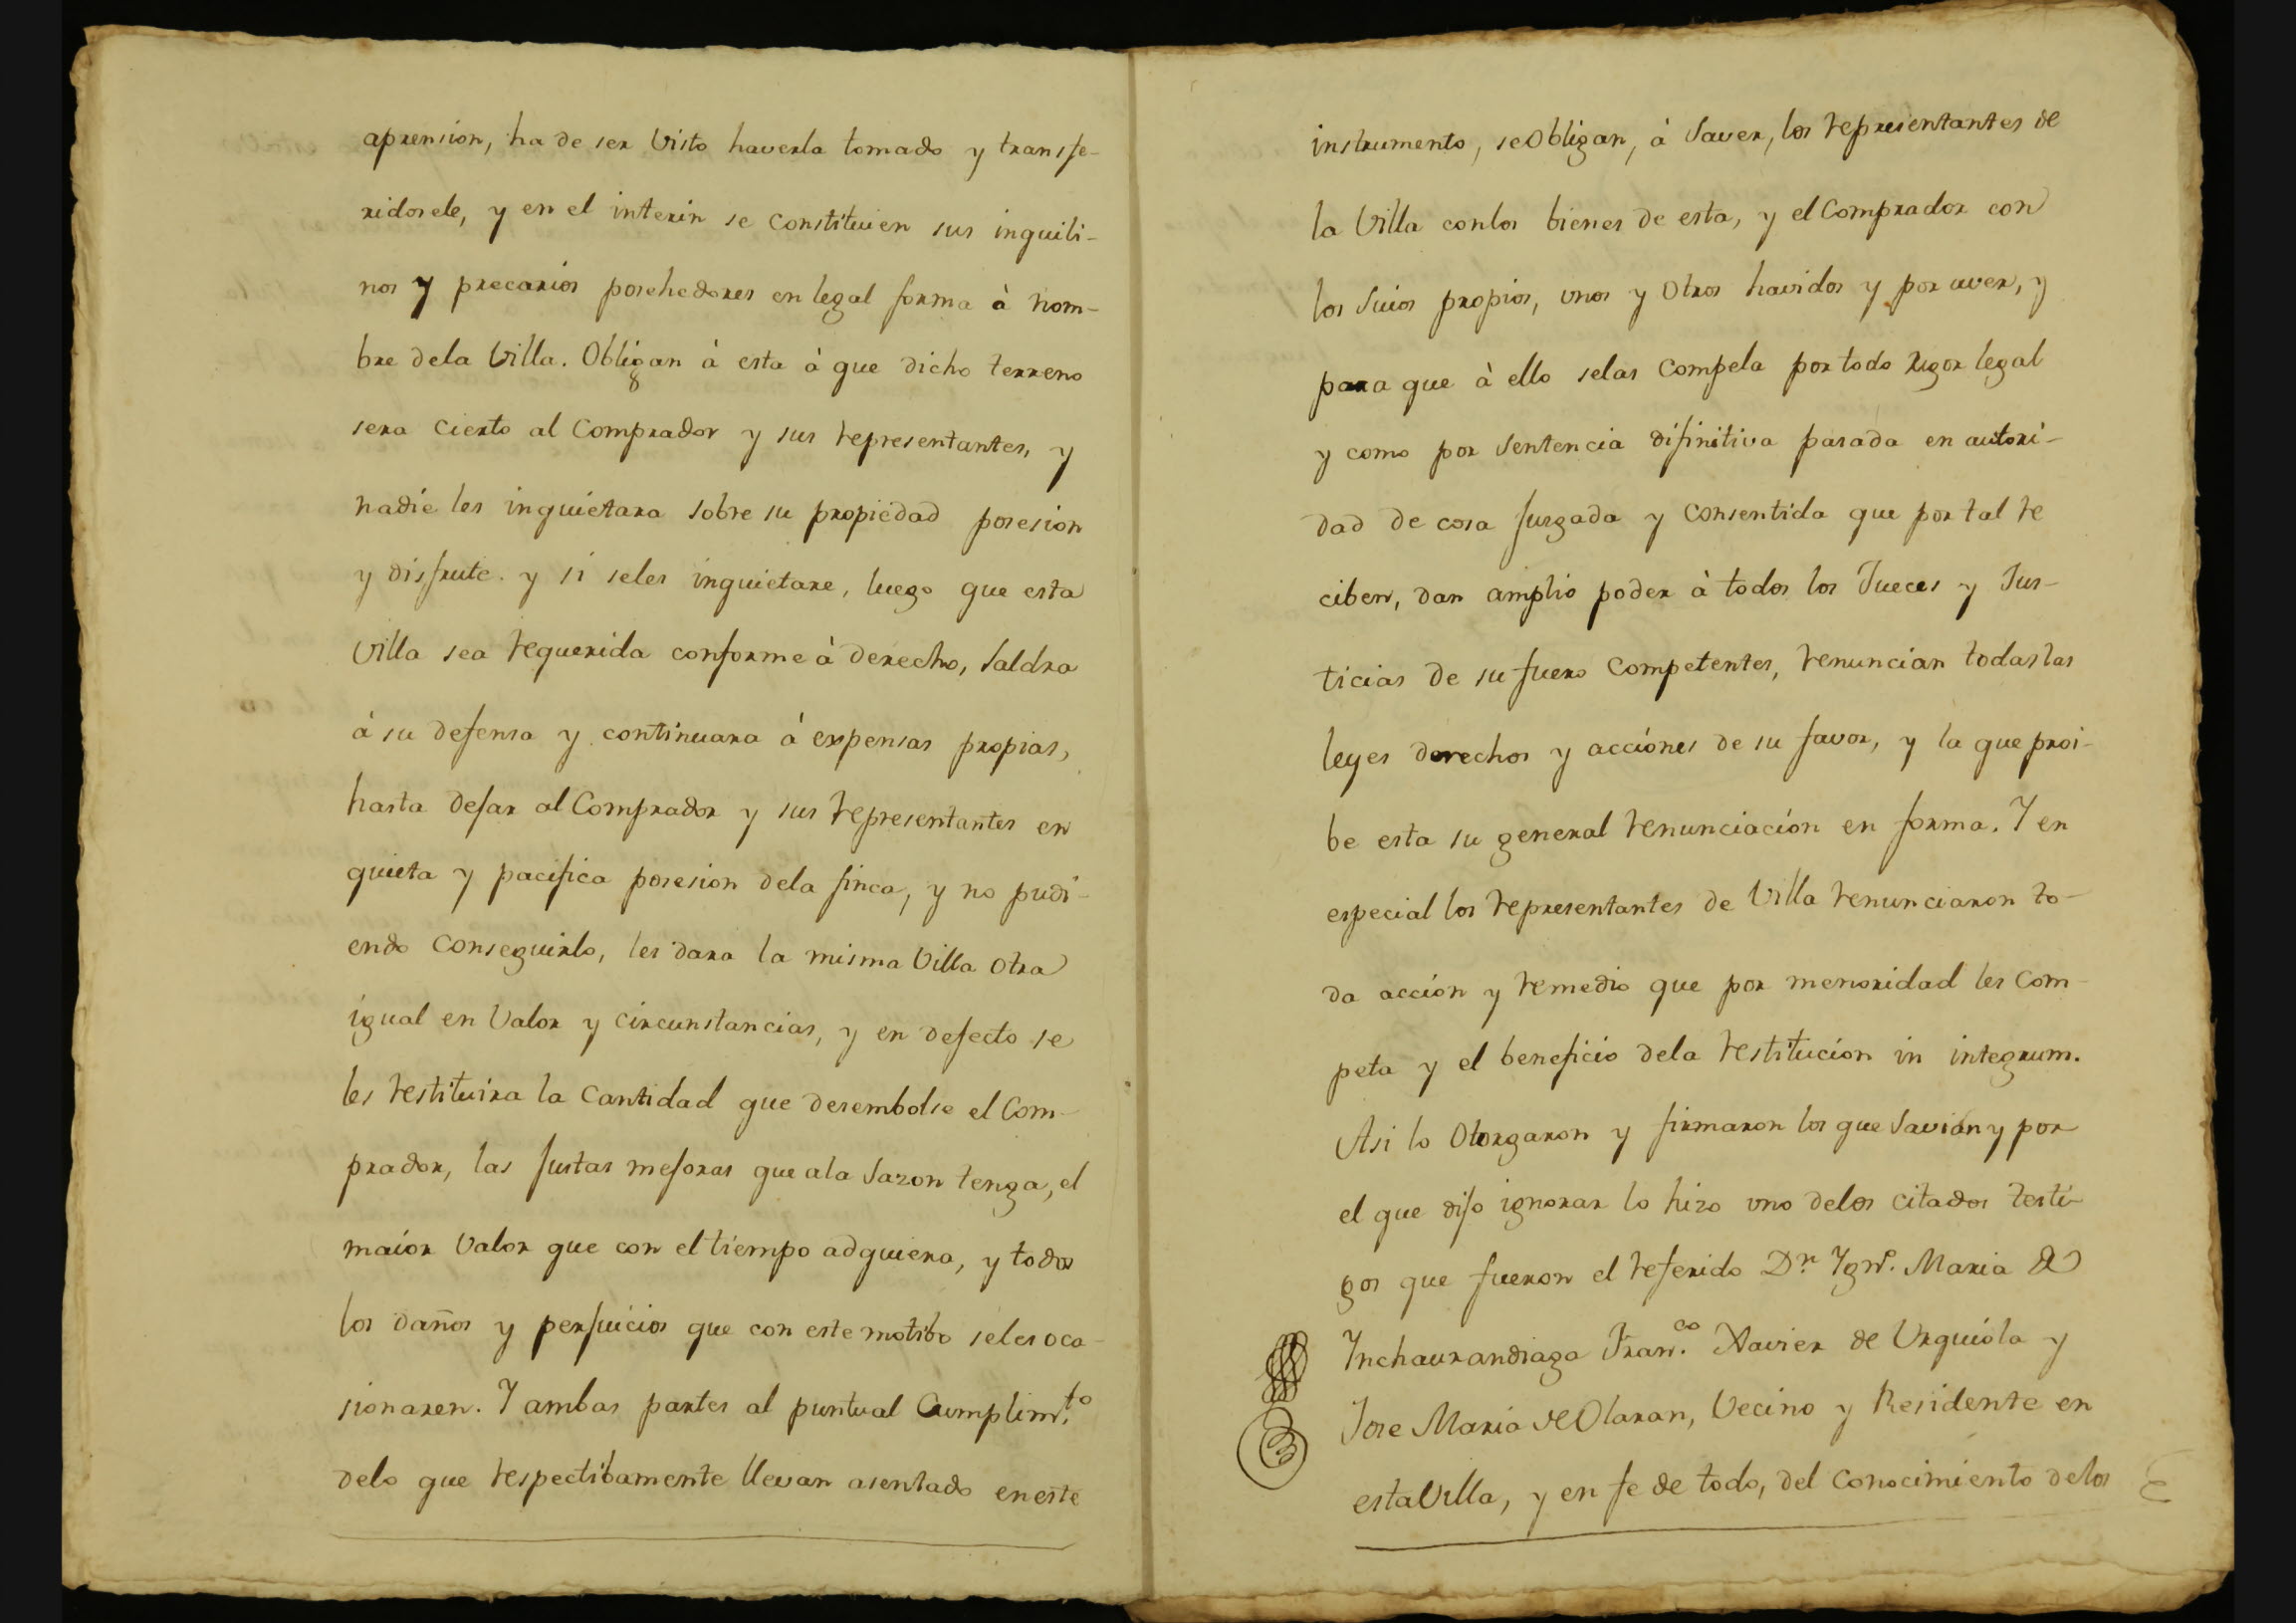 aprension, ha de ser Visto haverla tomado y transfe-
ridosele, y en el interin se constituien sus inquili-
nos y precarios posehedores en legal forma à nom-
bre dela Villa. Obligan à esta à que dicho terreno
sera cierto al Comprador y sus representantes, y
nadie les inquietara sobre su propiedad posesion
y disfrute. y si seles inquietare, luego que esta
Villa sea requerida conforme à derecho, saldra
à su defensa y continuara à expensas propias,
hasta dejar al Comprador y sus representantes en
quieta y pacifica posesion dela finca, y no pudi-
endo conseguirlo, les dara la misma Villa otra
igual en Valor y circunstancias, y en defecto se
les restituira la Cantidad que desembolse el Com-
prador, las justas mejoras que ala sazon tenga, el
maior Valor que con el tiempo adquiera, y todos
los daños y perjuicios que con este motibo seles oca-
sionaren. Y ambas partes al puntual Cumplim.to
delo que respectibamente llevan asentado eneste
instrumento, se Obligan, à Saver, los representantes de
la Villa conlos bienes de esta, y el Comprador con
los Suios propios, unos y Otros havidos y por aver, y
para que à ello selas Compela por todo rigor legal
y como por Sentencia difinitiva pasada en autori-
dad de cosa Juzgada y consentida que por tal re
ciben, dan amplio poder à todos los Jueces y Jus-
ticias de su fuero Competentes, renuncian todas las
leyes derechos y acciónes de su favor, y la que proi-
be esta su general renunciación en forma. Y en
especial los representantes de Villa renunciaron to-
da acción y remedio que por menoridad les Com-
peta y el beneficio dela restitución in integrum.
Asi lo Otorgaron y firmaron los que Savian y por
el que dijo ignorar lo hizo uno delos citados testi-
gos que fueron el referido Dn. Ygno. Maria de
Ynchaurandiaga Fran.co Xavier de Urquiola y
Jose Maria de Olaran, Vecino y Residente en
esta Villa, y en fe de todo, del conocimiento delos